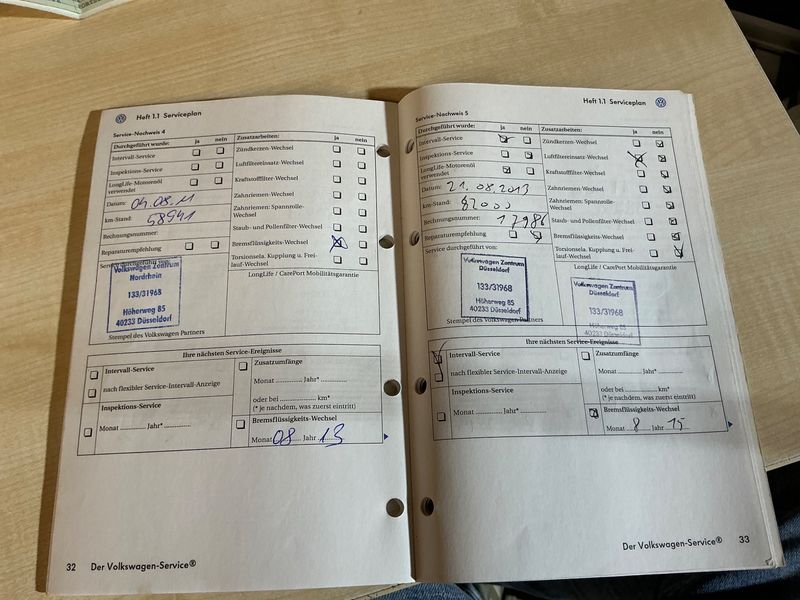 Heft 1.1 Serviceplan
Service-Nachweis 4
Durchgeführt wurde: ja nein
Intervall-Service
Inspektions-Service
LongLife-Motorenöl
verwendet
Datum: 04.08.11
km-Stand: 58941
Rechnungsnummer:
Reparaturempfehlung
Service durchgeführt von:
Volkswagen Zentrum
Nordrhein
133/31968
Höherweg 85
40233 Düsseldorf
Stempel des Volkswagen Partners
Zusatzarbeiten: ja nein
Zündkerzen-Wechsel
Luftfiltereinsatz-Wechsel
Kraftstofffilter-Wechsel
Zahnriemen-Wechsel
Zahnriemen: Spannrolle-
Wechsel
Staub- und Pollenfilter-Wechsel
Bremsflüssigkeits-Wechsel
Torsionsela. Kupplung u. Frei-
lauf-Wechsel
LongLife / CarePort Mobilitätsgarantie
Ihre nächsten Service-Ereignisse
Intervall-Service
nach flexibler Service-Intervall-Anzeige
Inspektions-Service
Monat ............ Jahr* ..............
Zusatzumfänge
Monat ............ Jahr* ..............
oder bei .............. km*
(* je nachdem, was zuerst eintritt)
Bremsflüssigkeits-Wechsel
Monat 08 Jahr 13
32 Der Volkswagen-Service®
Heft 1.1 Serviceplan
Service-Nachweis 5
Durchgeführt wurde: ja nein
Intervall-Service
Inspektions-Service
LongLife-Motorenöl
verwendet
Datum: 21.08.2013
km-Stand: 82000
Rechnungsnummer: 17986
Reparaturempfehlung
Service durchgeführt von:
Volkswagen Zentrum
Düsseldorf
133/31968
Höherweg 85
40233 Düsseldorf
Stempel des Volkswagen Partners
Zusatzarbeiten: ja nein
Zündkerzen-Wechsel
Luftfiltereinsatz-Wechsel
Kraftstofffilter-Wechsel
Zahnriemen-Wechsel
Zahnriemen: Spannrolle-
Wechsel
Staub- und Pollenfilter-Wechsel
Bremsflüssigkeits-Wechsel
Torsionsela. Kupplung u. Frei-
lauf-Wechsel
LongLife / CarePort Mobilitätsgarantie
Volkswagen Zentrum
Düsseldorf
133/31968
Höherweg 85
40233 Düsseldorf
Ihre nächsten Service-Ereignisse
Intervall-Service
nach flexibler Service-Intervall-Anzeige
Inspektions-Service
Monat ............ Jahr* ..............
Zusatzumfänge
Monat ............ Jahr* ..............
oder bei .............. km*
(* je nachdem, was zuerst eintritt)
Bremsflüssigkeits-Wechsel
Monat 8 Jahr 15
Der Volkswagen-Service® 33